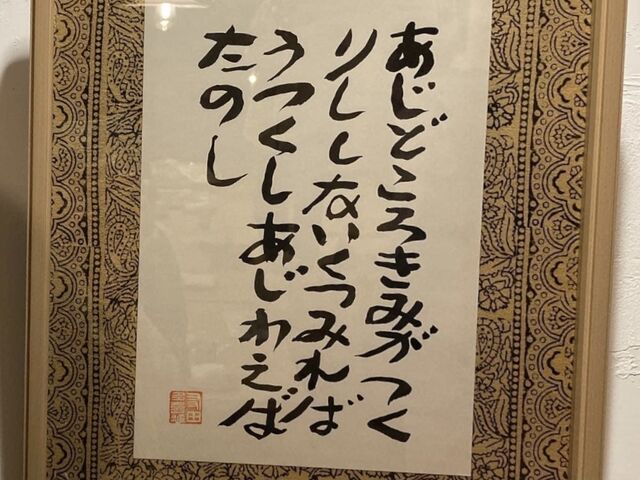 あじどころきみがつく
りししないくつみれば
うつくしあじわえば
たのし